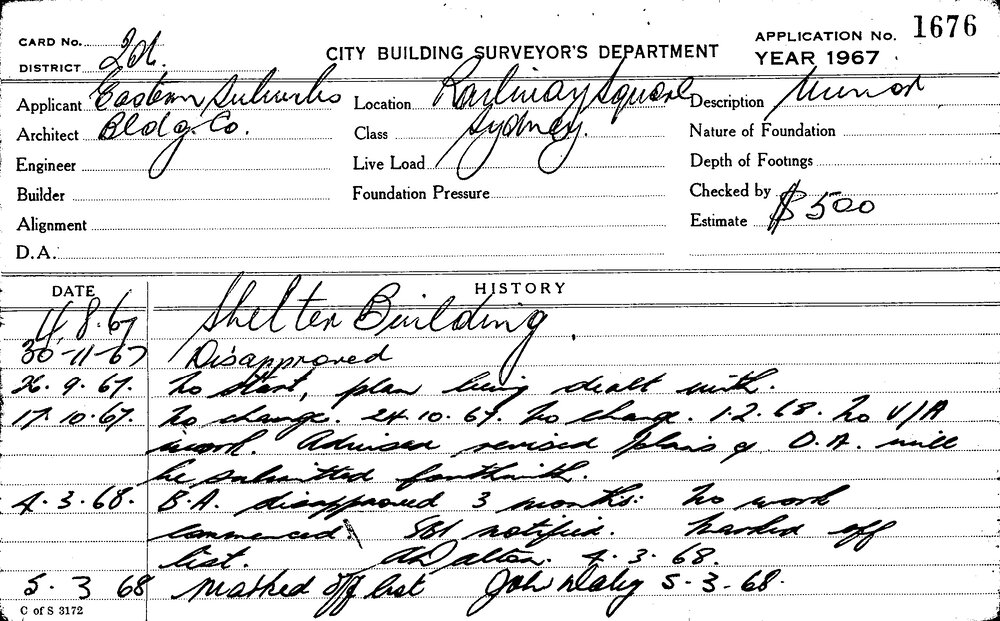 CARD No.
CITY BUILDING SURVEYOR'S DEPARTMENT
APPLICATION No. 1676
DISTRICT
YEAR 1967
Applicant Eastern Suburbs
Location Railway Square
Description Minor
Architect Bldg. Co.
Class Sydney.
Nature of Foundation
Engineer
Live Load
Depth of Footings
Builder
Foundation Pressure
Checked by
Alignment
Estimate $500
D.A.
DATE HISTORY
8.67 Shelter Building.
30-11-67 Disapproved
26.9.67. No start, plan being dealt with.
17.10.67. No change. 24.10.67. No change. 1.2.68. No V/A
work. Advised revised plans & D.A. will
be submitted forthwith.
4.3.68. B.A. disapproved 3 months: No work
commenced notified. Marked off
list. 4.3.68.
5.3 68 Marked off list John Daley 5-3-68.
C of S 3172